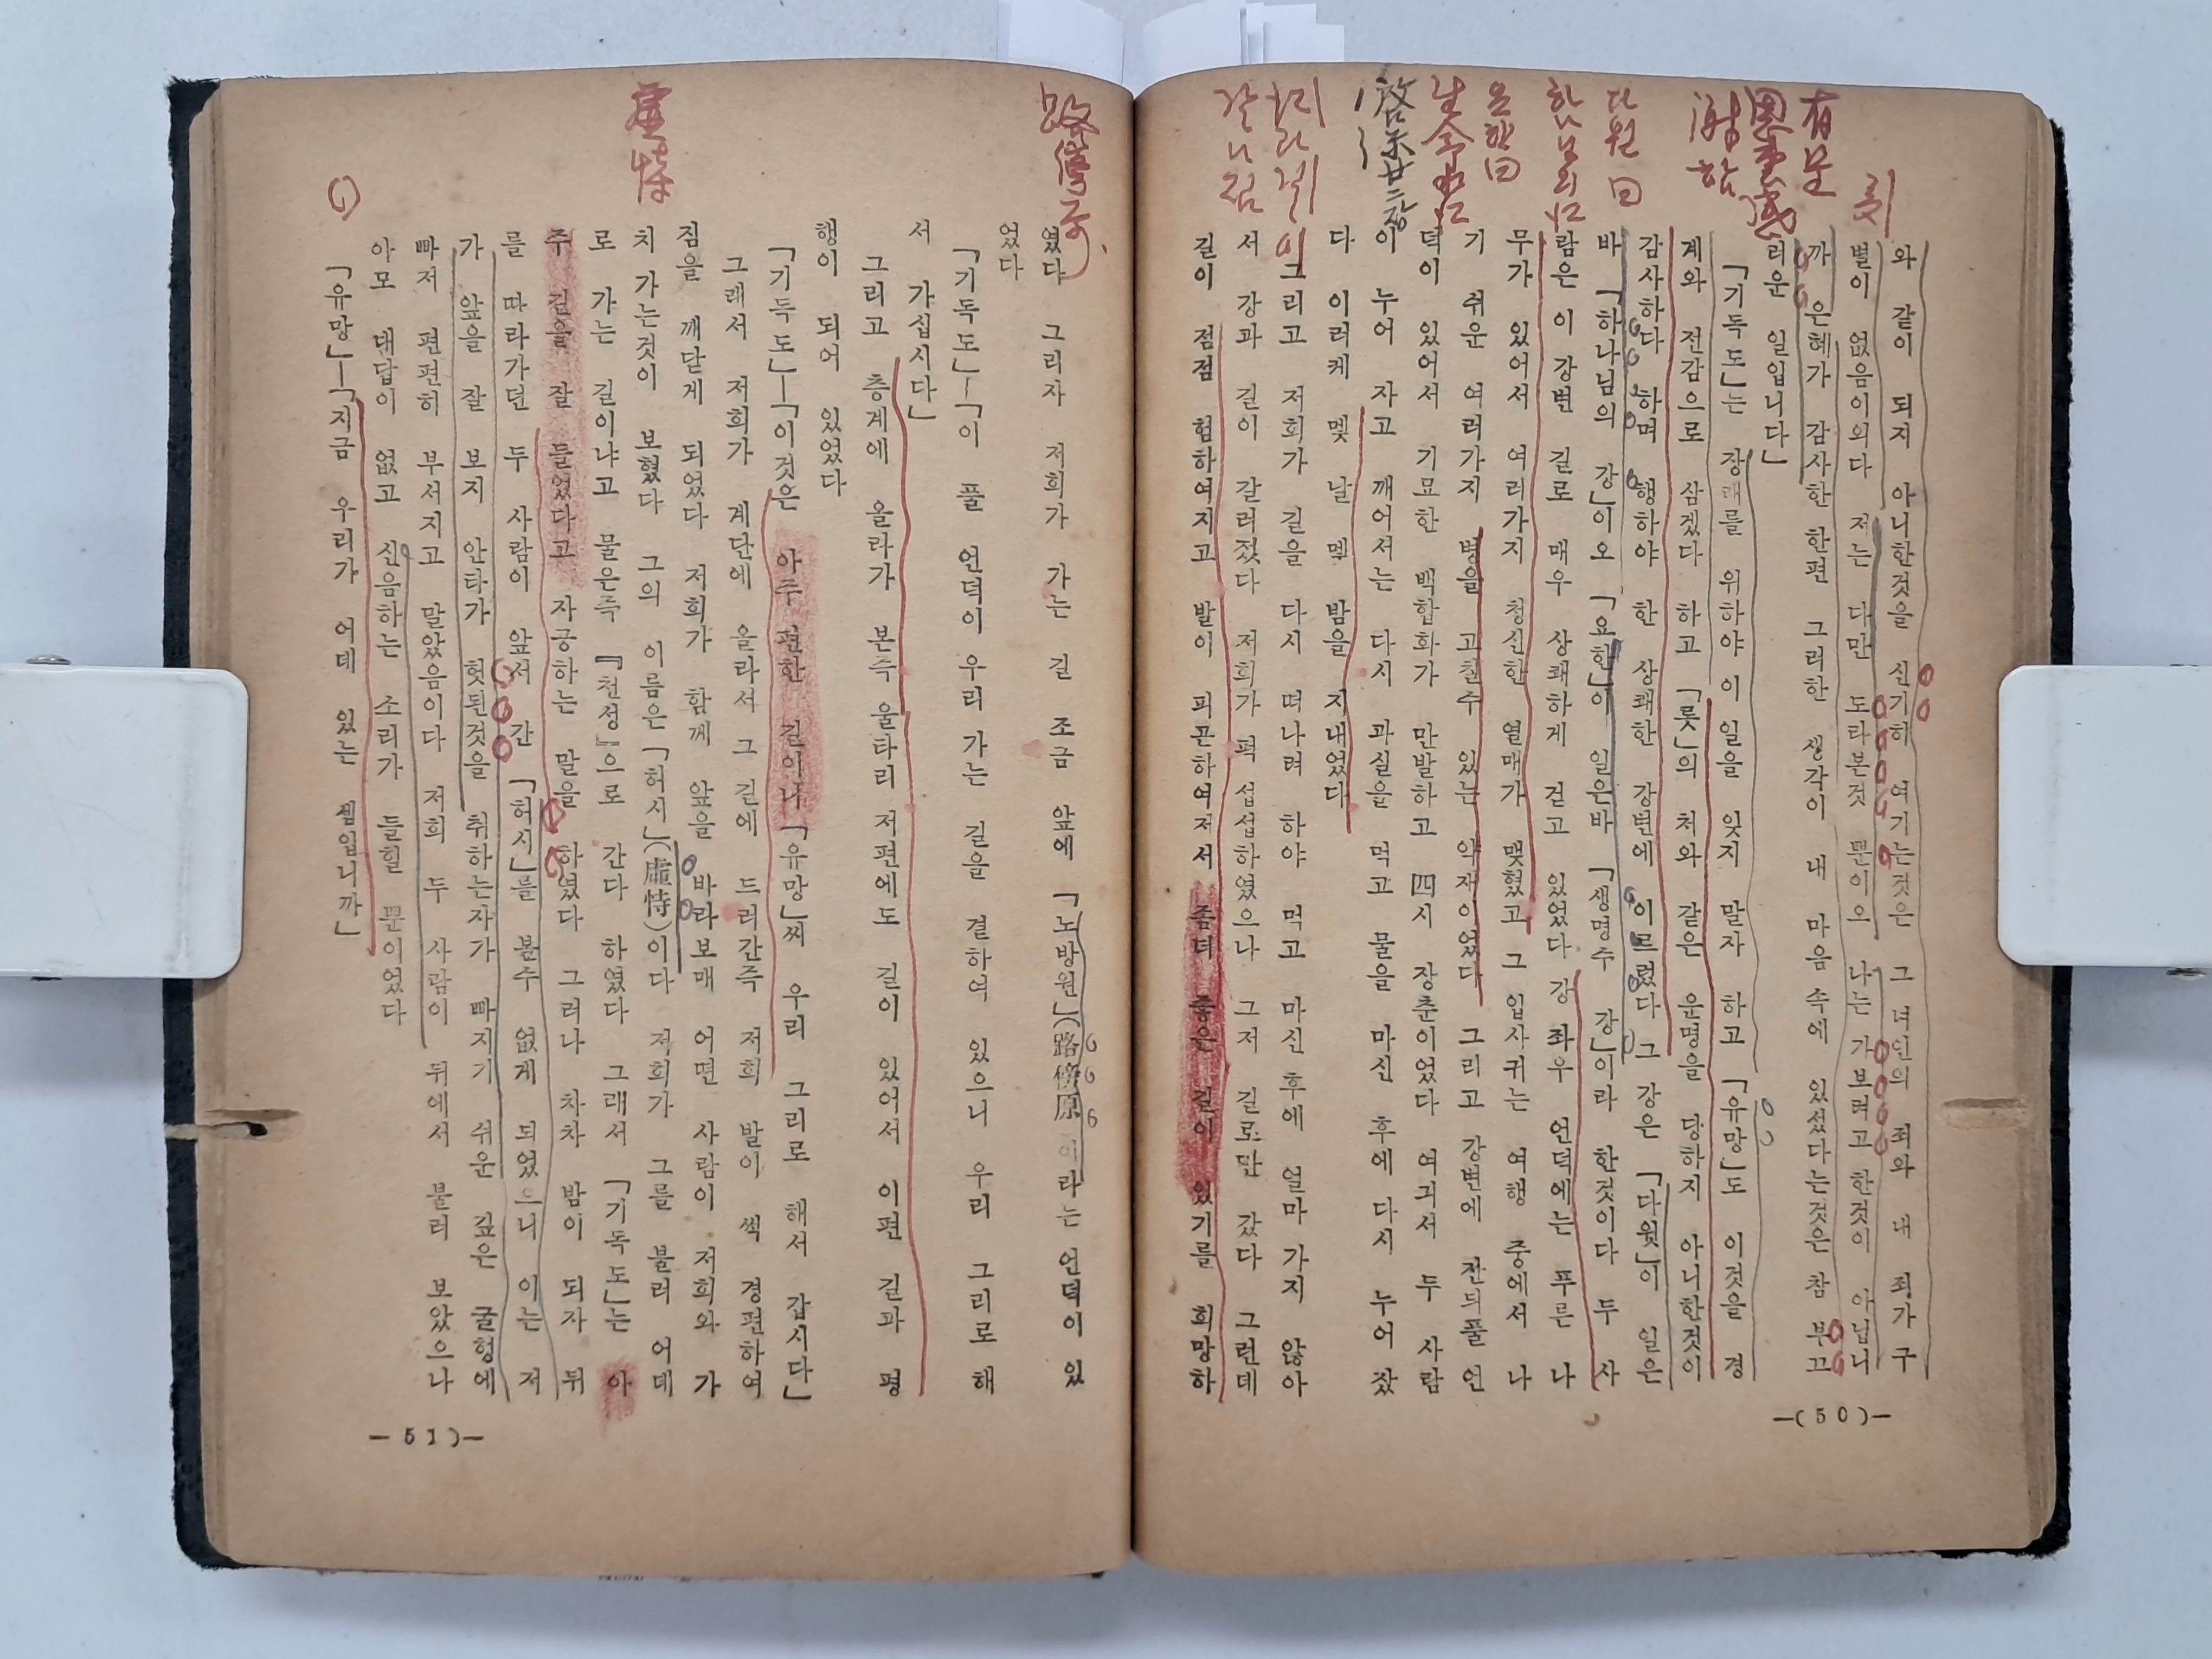 와 같이 되지 아니한것을 신기히 여기는것은 그 녀인의 죄와 내 죄가 구
별이 없음이외다 저는 다만 도라본것 뿐이오 나는 가보려고 한것이 아닙니
까 은혜가 감사한 한편 그러한 생각이 내 마음 속에 있섰다는것은 참 부끄
러운 일입니다」
「기독도」는 장래를 위하야 이 일을 잊지 말자 하고 「유망」도 이것을 경
계와 전감으로 삼겠다 하고 「롯」의 처와 같은 운명을 당하지 아니한것이
감사하다 하며 행하야 한 상쾌한 강변에 이르렀다 그 강은 「다윗」이 일은
바 「하나님의 강」이오 「요한」이 일은바 「생명수 강」이라 한것이다 두 사
람은 이 강변 길로 매우 상쾌하게 걷고 있었다 강 좌우 언덕에는 푸른 나
무가 있어서 여러가지 청신한 열매가 맺혔고 그 입사귀는 여행 중에서 나
기 쉬운 여러가지 병을 고칠수 있는 약재이었다 그리고 강변에 잔듸풀 언
덕이 있어서 기묘한 백합화가 만발하고 四시 장춘이었다 여긔서 두 사람
이 누어 자고 깨어서는 다시 과실을 먹고 물을 마신 후에 다시 누어 잤
다 이러케 몇 날 몇 밤을 지내었다
그리고 저희가 길을 다시 떠나려 하야 먹고 마신 후에 얼마 가지 않아
서 강과 길이 갈러젔다 저희가 퍽 섭섭하였으나 그저 길로만 갔다 그런데
길이 점점 험하여지고 발이 피곤하여저서 좀더 좋은 길이 있기를 희망하
—(50)—
였다 그리자 저희가 가는 길 조금 앞에 「노방원」(路傍原 이라는 언덕이 있
었다
「기독도」—「이 풀 언덕이 우리 가는 길을 결하여 있으니 우리 그리로 해
서 가십시다」
그리고 층계에 올라가 본즉 울타리 저편에도 길이 있어서 이편 길과 평
행이 되어 있었다
「기독도」—「이것은 아주 편한 길이나 「유망」씨 우리 그리로 해서 갑시다」
그래서 저희가 계단에 올라서 그 길에 드러간즉 저희 발이 썩 경편하여
짐을 깨닫게 되었다 저희가 함께 앞을 바라보매 어떤 사람이 저희와 가
치 가는것이 보혔다 그의 이름은 「허시」(虛恃)이다 저희가 그를 불러 어데
로 가는 길이냐고 물은즉 『천성』으로 간다 하였다 그래서 「기독도」는 아
주 길을 잘 들었다고 자긍하는 말을 하였다 그러나 차차 밤이 되자 뒤
를 따라가던 두 사람이 앞서 간 「허시」를 볼수 없게 되었으니 이는 저
가 앞을 잘 보지 안타가 헛된것을 취하는자가 빠지기 쉬운 깊은 굴헝에
빠저 편편히 부서지고 말았음이다 저희 두 사람이 뒤에서 불러 보았으나
아모 대답이 없고 신음하는 소리가 들힐 뿐이었다
「유망」—「지금 우리가 어데 있는 셈입니까」
—51)—
有足
다윋曰
하나님의江
요한曰
生命水江
啓示廿二장
갈나짐
虛恃